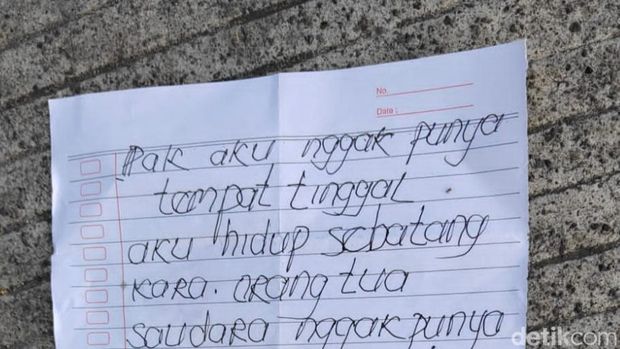 No.
Date :
Pak aku nggak punya
tempat tinggal
aku hidup sebatang
kara. orang tua
saudara nggak punya
detikcom